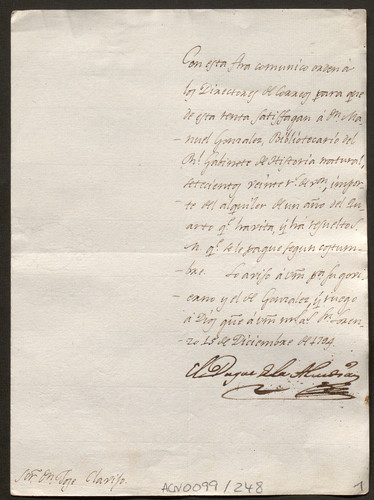 Con esta fha comunico orden á
los Directores de Correos para que
de esta renta satisfagan á Dn. Ma-
nuel Gonzalez, Bibliotecario del
Rl. Gabinete de Historia natural,
setecientos veinte rs. de von. impor-
te del alquiler de un año del Qu-
arto qe. havita, y há resuelto S.
M. qe. se le pague segun costum-
bre. Lo aviso á vm pa. su gov-
erno y el de Gonzalez, y ruego
á Dios gue. á vm ms. as. Sn. Loren-
zo 15 de Diciembre de
El Duque de la Alcudia
Sor. Dn. Jose Clavijo.
ACN0099/248
1